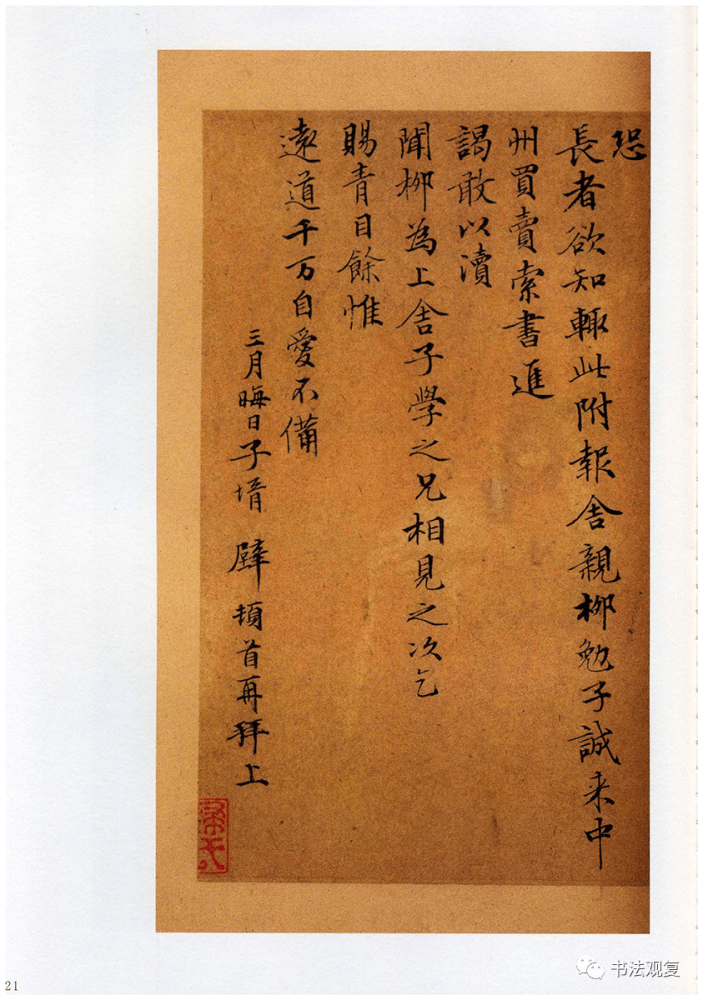 恐
長者欲知輙此附報舍親柳勉子誠来中
州買賣索書進
謁敢以瀆
聞柳為上舍子學之兄相見之次乞
賜青目餘惟
遠道千万自愛不備
三月晦日子壻
頓首再拜上
21
书法观复